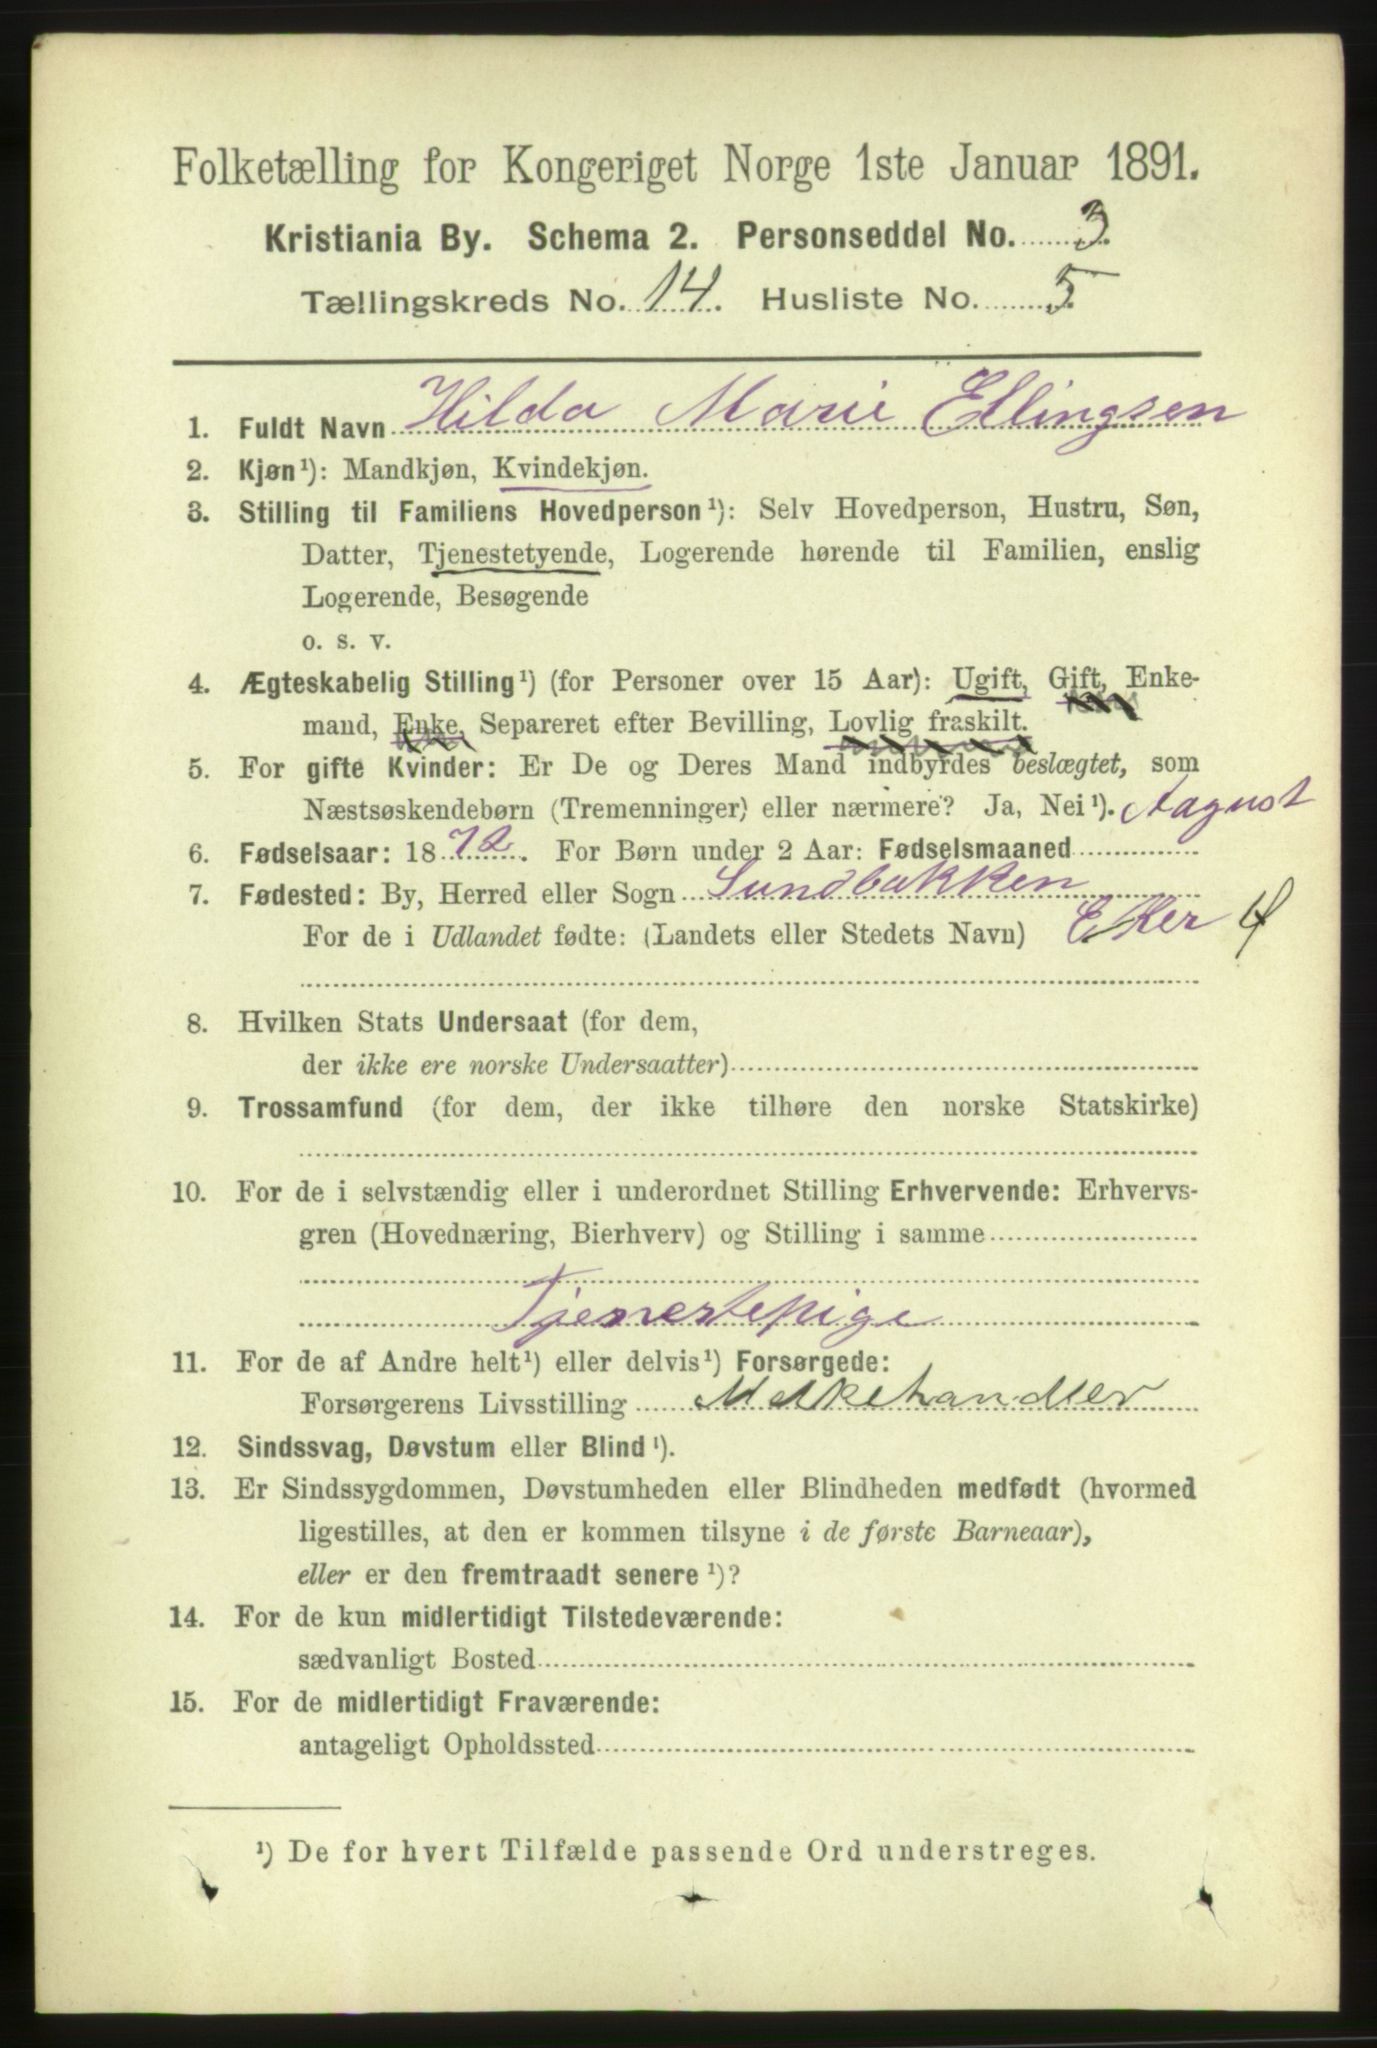 Folketælling for Kongeriget Norge 1ste Januar 1891.
Kristiania By. Schema 2. Personseddel No. 3.
Tællingskreds No. 14. Husliste No. 5.
1. Fuldt Navn Hilda Marie Ellingsen
2. Kjøn¹): Mandkjøn, Kvindekjøn.
3. Stilling til Familiens Hovedperson¹): Selv Hovedperson, Hustru, Søn,
Datter, Tjenestetyende, Logerende hørende til Familien, enslig
Logerende, Besøgende
o. s. v.
4. Ægteskabelig Stilling¹) (for Personer over 15 Aar): Ugift, Gift, Enke-
mand, Enke, Separeret efter Bevilling, Lovlig fraskilt.
5. For gifte Kvinder: Er De og Deres Mand indbyrdes beslægtet, som
Næstsøskendebørn (Tremenninger) eller nærmere? Ja, Nei¹). Aagust
6. Fødselsaar: 1872. For Børn under 2 Aar: Fødselsmaaned
7. Fødested: By, Herred eller Sogn Sundbakken
For de i Udlandet fødte: (Landets eller Stedets Navn) Eker
8. Hvilken Stats Undersaat (for dem,
der ikke ere norske Undersaatter)
9. Trossamfund (for dem, der ikke tilhøre den norske Statskirke)
10. For de i selvstændig eller i underordnet Stilling Erhvervende: Erhvervs-
gren (Hovednæring, Bierhverv) og Stilling i samme
Tjenestepige
11. For de af Andre helt¹) eller delvis¹) Forsørgede:
Forsørgerens Livsstilling Melkehandler
12. Sindssvag, Døvstum eller Blind¹).
13. Er Sindssygdommen, Døvstumheden eller Blindheden medfødt (hvormed
ligestilles, at den er kommen tilsyne i de første Barneaar),
eller er den fremtraadt senere¹)?
14. For de kun midlertidigt Tilstedeværende:
sædvanligt Bosted
15. For de midlertidigt Fraværende:
antageligt Opholdssted
¹) De for hvert Tilfælde passende Ord understreges.